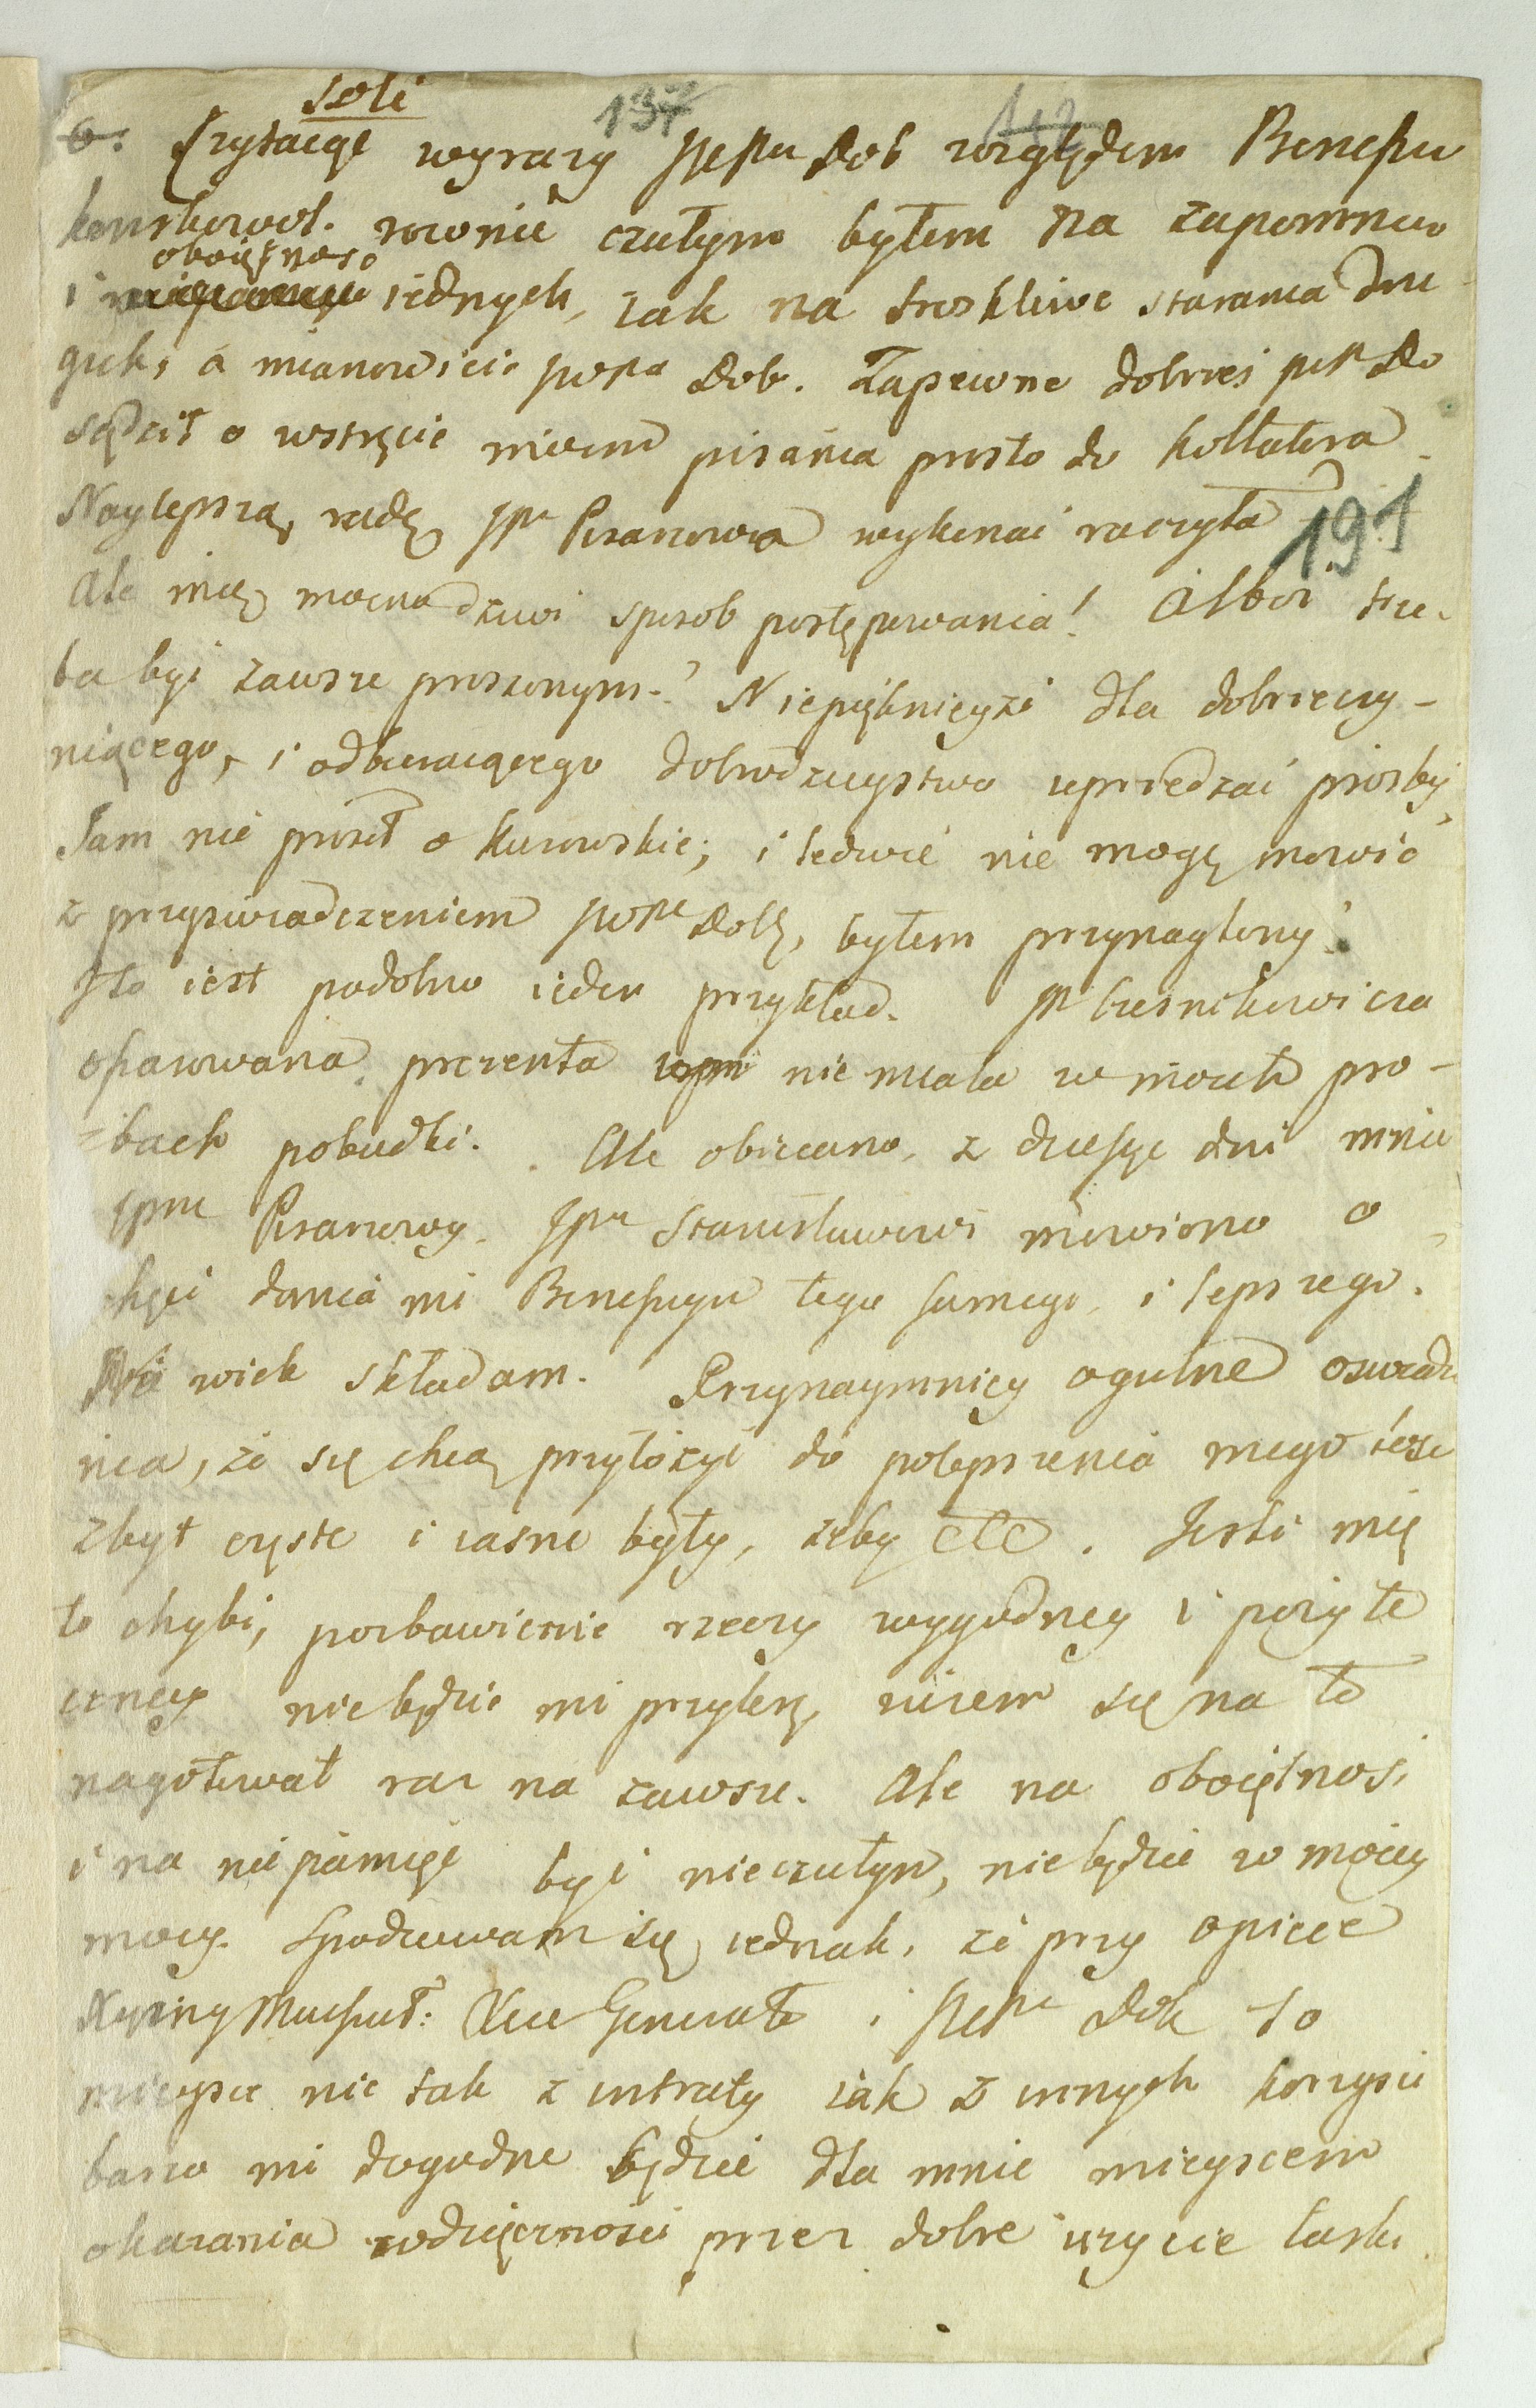 soli
137 112
6. Czytaiąc wyrazy JPePu Dob względem Beneficu
konskowol. rownie czułym byłem na zapomnien
oboiętnosc
i iednych, iak na troskliwe starania dru
gich, a mianowicie JPePa Dob. Zapewne dobrześ JPP Do
sądził o wstręcie moim pisania prosto do kollatora
Naylepszą radę JPa Pisarzowa wykonać raczyła
191
Ale mię mocno dziwi sposob postępowania! Alboż trze-
ba być zawsze proszonym? Niepięknieyże dla dobrzeczy-
niącego, i odbieraiącego dobrodzieystwo uprzedzać prosby,
Sam nie prosił o kurowskie; i ledwie nie mogę mowić
z przyswiadczeniem JPePa Dob, byłem przynaglony.
Jto iest podobno ieden przykład. JP Czesnikowicza
ofiarowana prezenta nie miała w moich pro-
zbach pobudki. Ale obiecano, z dziesięć dni mnie
JPni Pisarzowy. JPu Stanisławowi mowiono o
chęci dania mi Beneficyu tego samego i lepszego.
Na wiek składam. Przynaymniey ogulne oswiadcze
nia, że się chcą przyłożyć do polepszenia mego losu
zbyt częste i iasne były, żeby etc. Jesli mię
to chybi, pozbawienie rzeczy wygodney i pożyte
czney niebędzie mi przykre, nizem się na to
nagotował raz na zawsze. Ale na oboiętnosć
i na nie pamięć być nieczułym, niebędzie w moiey
mocy. Spodziewam się iednak, że przy opiece
Xcia Generała i JPePa Dob to
mieysce nie tak z intraty iak z innych korzysci
barzo mi dogodne będzie dla mnie mieyscem
okazania wdzięcznosci przez dobre użycie łaski.